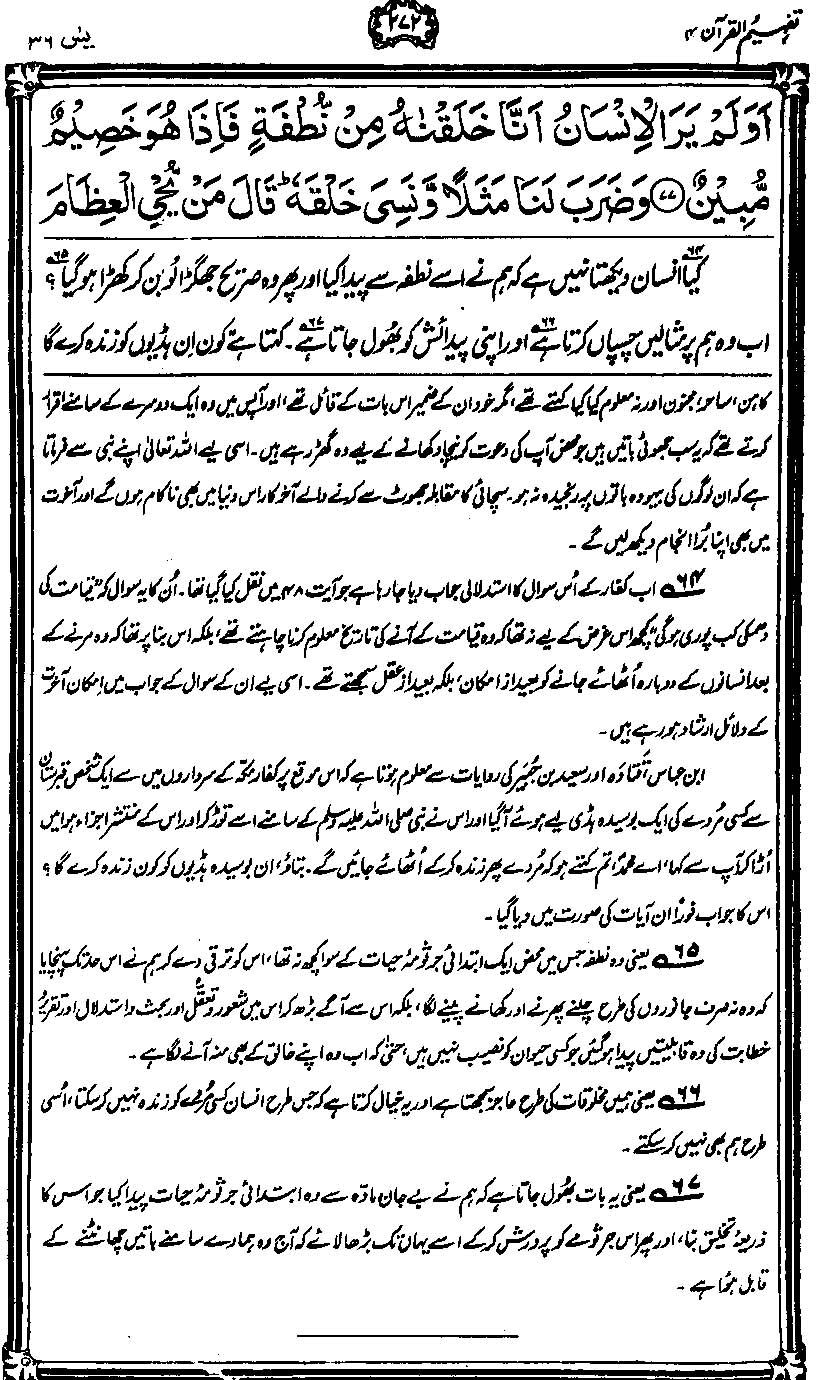 تفہیم القرآن ۴
۲۷۲
یٰسٓ ۳۶
اَوَلَمْ یَرَ الْاِنْسَانُ اَنَّا خَلَقْنٰهُ مِنْ نُّطْفَةٍ فَاِذَا هُوَ خَصِیْمٌ
مُّبِیْنٌ ﴿۷۷﴾ وَضَرَبَ لَنَا مَثَلًا وَّنَسِیَ خَلْقَهٗ ؕ قَالَ مَنْ یُّحْیِ الْعِظَامَ
کیا۶۴ انسان دیکھتا نہیں ہے کہ ہم نے اسے نطفہ سے پیدا کیا اور پھر وہ صریح جھگڑالو بن کر کھڑا ہوگیا۶۵؟
اب وہ ہم پر مثالیں چسپاں کرتا ہے۶۶ اور اپنی پیدائش کو بھُول جاتا ہے۶۷۔ کہتا ہے کون اِن ہڈیوں کو زندہ کرے گا
کاہن، ساحر، مجنون اور نہ معلوم کیا کیا کہتے تھے، مگر خود ان کے ضمیر اس بات کے قائل تھے، اور آپس میں وہ ایک دوسرے کے سامنے اقرار
کرتے تھے کہ یہ سب جھوٹی باتیں ہیں جو محض آپ کی دعوت کو نیچا دکھانے کے لیے وہ گھڑ رہے ہیں۔ اسی لیے اللہ تعالیٰ اپنے نبی سے فرماتا
ہے کہ ان لوگوں کی بیہودہ باتوں پر رنجیدہ نہ ہو۔ سچائی کا مقابلہ جھوٹ سے کرنے والے آخر کار اس دنیا میں بھی ناکام ہوں گے اور آخرت
میں بھی اپنا بُرا انجام دیکھ لیں گے۔
۶۴ اب کفار کے اُس سوال کا استدلالی جواب دیا جا رہا ہے جو آیت ۴۸ میں نقل کیا گیا تھا۔ اُن کا یہ سوال کہ ”قیامت کی
دھمکی کب پوری ہوگی“ کچھ اس غرض کے لیے نہ تھا کہ وہ قیامت کے آنے کی تاریخ معلوم کرنا چاہتے تھے، بلکہ اس بنا پر تھا کہ وہ مرنے کے
بعد انسانوں کے دوبارہ اُٹھائے جانے کو بعید از امکان، بلکہ بعید از عقل سمجھتے تھے۔ اسی لیے ان کے سوال کے جواب میں امکان آخرت
کے دلائل ارشاد ہو رہے ہیں۔
ابن عباس، قَتَادہ اور سعید بن جُبَیر کی روایات سے معلوم ہوتا ہے کہ اس موقع پر کفار مکہ کے سرداروں میں سے ایک شخص قبرستان
سے کسی مُردے کی ایک بوسیدہ ہڈی لیے ہوئے آگیا اور اس نے نبی صلی اللہ علیہ وسلم کے سامنے اسے توڑ کر اور اس کے منتشر اجزاء ہوا میں
اُڑا کر آپ سے کہا، اے محمدؐ، تم کہتے ہو کہ مُردے پھر زندہ کر کے اُٹھائے جائیں گے۔ بتاؤ، ان بوسیدہ ہڈیوں کو کون زندہ کرے گا؟
اس کا جواب فوراً ان آیات کی صورت میں دیا گیا۔
۶۵ یعنی وہ نطفہ جس میں محض ایک ابتدائی جرثومۂ حیات کے سوا کچھ نہ تھا، اس کو ترقی دے کر ہم نے اس حد تک پہنچایا
کہ وہ نہ صرف جانوروں کی طرح چلنے پھرنے اور کھانے پینے لگا، بلکہ اس سے آگے بڑھ کر اس میں شعور و تعقُّل اور بحث و استدلال اور تقریر و
خطابت کی وہ قابلیتیں پیدا ہوگئیں جو کسی حیوان کو نصیب نہیں ہیں، حتیٰ کہ اب وہ اپنے خالق کے بھی منہ آنے لگا ہے۔
۶۶ یعنی ہمیں مخلوقات کی طرح عاجز سمجھتا ہے اور یہ خیال کرتا ہے کہ جس طرح انسان کسی مُردے کو زندہ نہیں کر سکتا، اُسی
طرح ہم بھی نہیں کر سکتے۔
۶۷ یعنی یہ بات بھُول جاتا ہے کہ ہم نے بے جان مادّہ سے وہ ابتدائی جرثومۂ حیات پیدا کیا جو اس کا
ذریعۂ تخلیق بنا، اور پھر اس جرثومے کو پرورش کر کے اسے یہاں تک بڑھا لائے کہ آج وہ ہمارے سامنے باتیں چھانٹنے کے
قابل ہُوا ہے۔